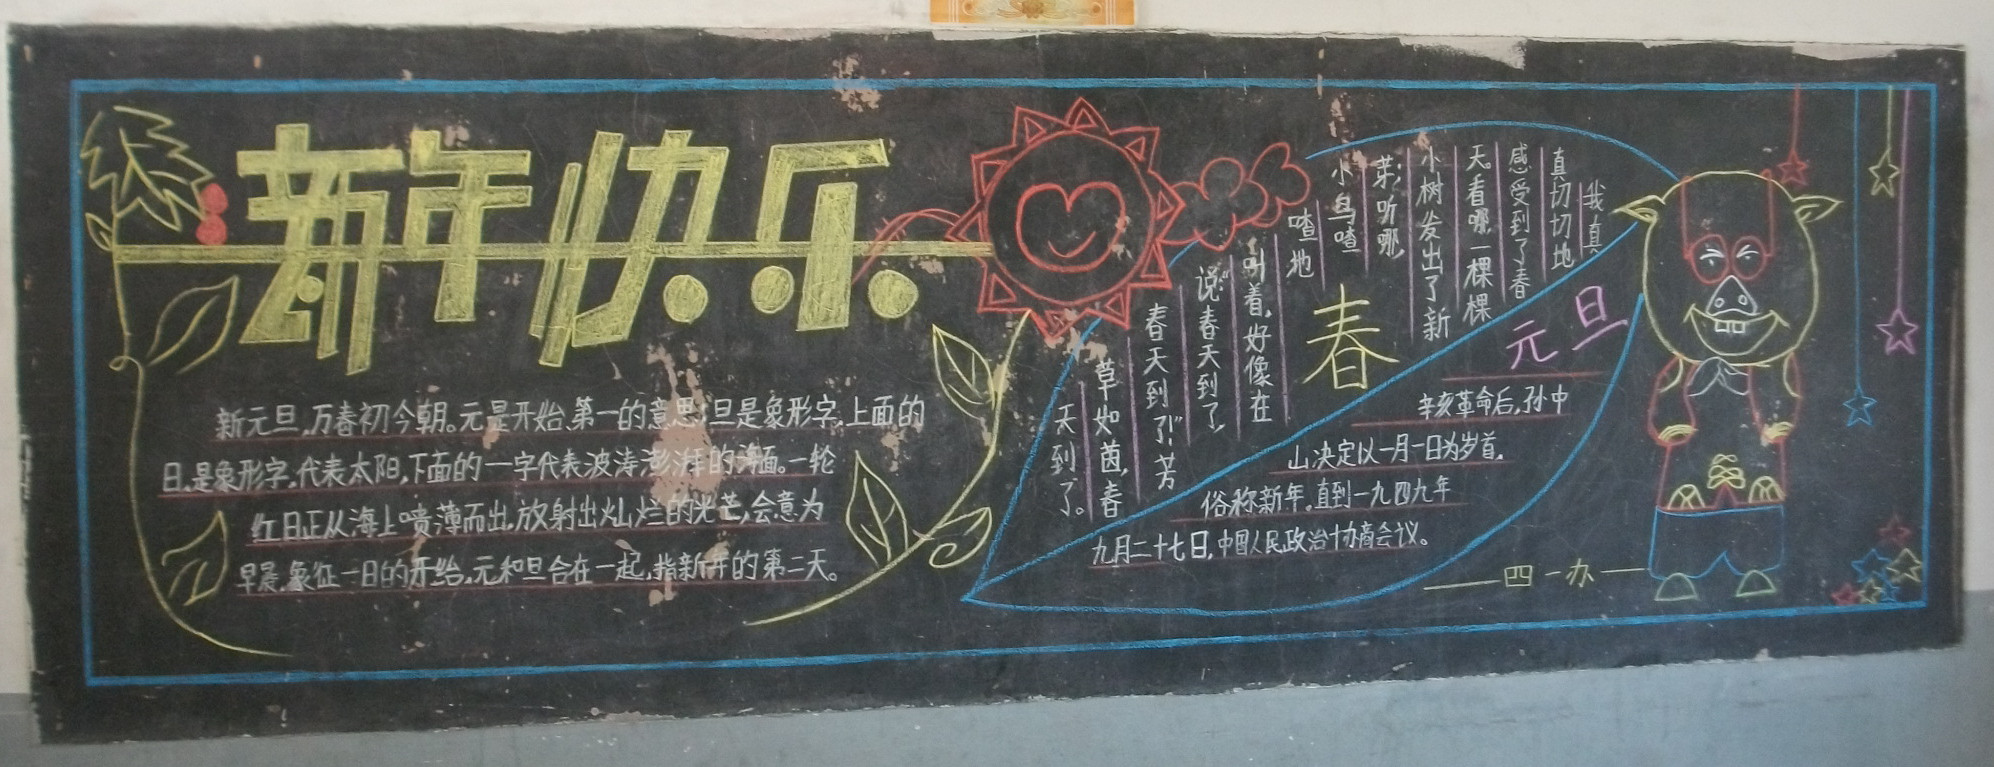 新年快乐
新元旦,万春初今朝。元是开始、第一的意思;旦是象形字,上面的
日,是象形字,代表太阳,下面的一字代表波涛澎湃的海面。一轮
红日正从海上喷薄而出,放射出灿烂的光芒,会意为
早晨,象征一日的开始,元和旦合在一起,指新年的第二天。
春
我真
真切切地
感受到了春
天。看哪,一棵棵
小树发出了新
芽;听哪,
小鸟喳
喳地
叫着,好像在
说:“春天到了,
春天到了!”芳
草如茵,春
天到了。
元旦
辛亥革命后,孙中
山,决定以一月一日为岁首,
俗称新年,直到一九四九年
九月二十七日,中国人民政治协商会议。
——四一办——